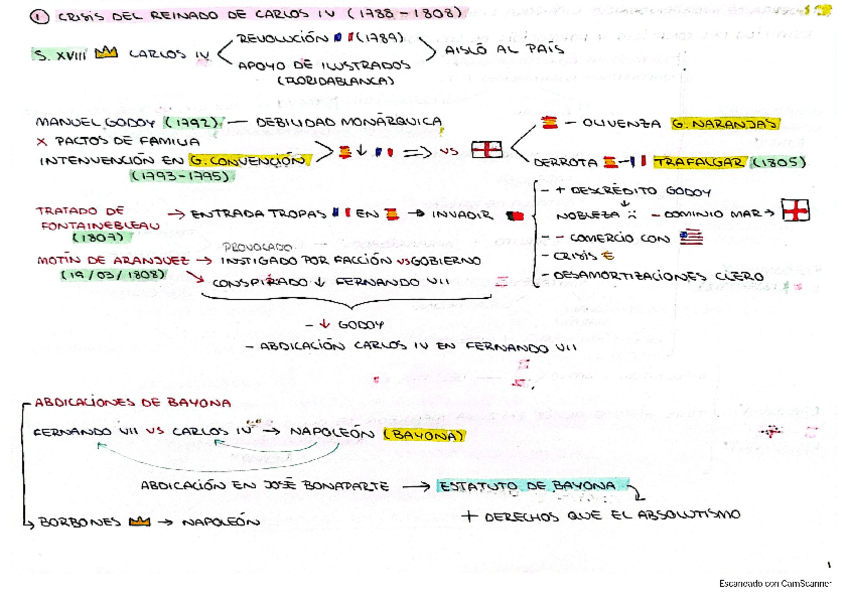 1 CRISIS DEL REINADO DE CARLOS IV (1788-1808)
REVOLUCIÓN (1789)
S. XVIII CARLOS IV
AISLÓ AL PAÍS
APOYO DE ILUSTRADOS
(FLORIDABLANCA)
MANUEL GODOY (1792) — DEBILIDAD MONÁRQUICA
X PACTOS DE FAMILIA
INTENVENCIÓN EN G. CONVENCIÓN
(1793-1795)
=> VS
- OLIVENZA G. NARANJAS
DERROTA - TRAFALGAR (1805)
- + DESCRÉDITO GODOY
NOBLEZA - DOMINIO MAR →
- - COMERCIO CON
- CRISIS €
- DESAMORTIZACIONES CLERO
TRATADO DE
FONTAINEBLEAU
(1807)
→ ENTRADA TROPAS EN → INVADIR
MOTÍN DE ARANJUEZ
(19/03/1808)
PROVOCADO
→ INSTIGADO POR FACCIÓN VS GOBIERNO
CONSPIRADO ↓ FERNANDO VII
- ↓ GODOY
- ABDICACIÓN CARLOS IV EN FERNANDO VII
ABDICACIONES DE BAYONA
FERNANDO VII VS CARLOS IV → NAPOLEÓN (BAYONA)
ABDICACIÓN EN JOSÉ BONAPARTE → ESTATUTO DE BAYONA
+ DERECHOS QUE EL ABSOLUTISMO
BORBONES → NAPOLEÓN
1
Escaneado con CamScanner